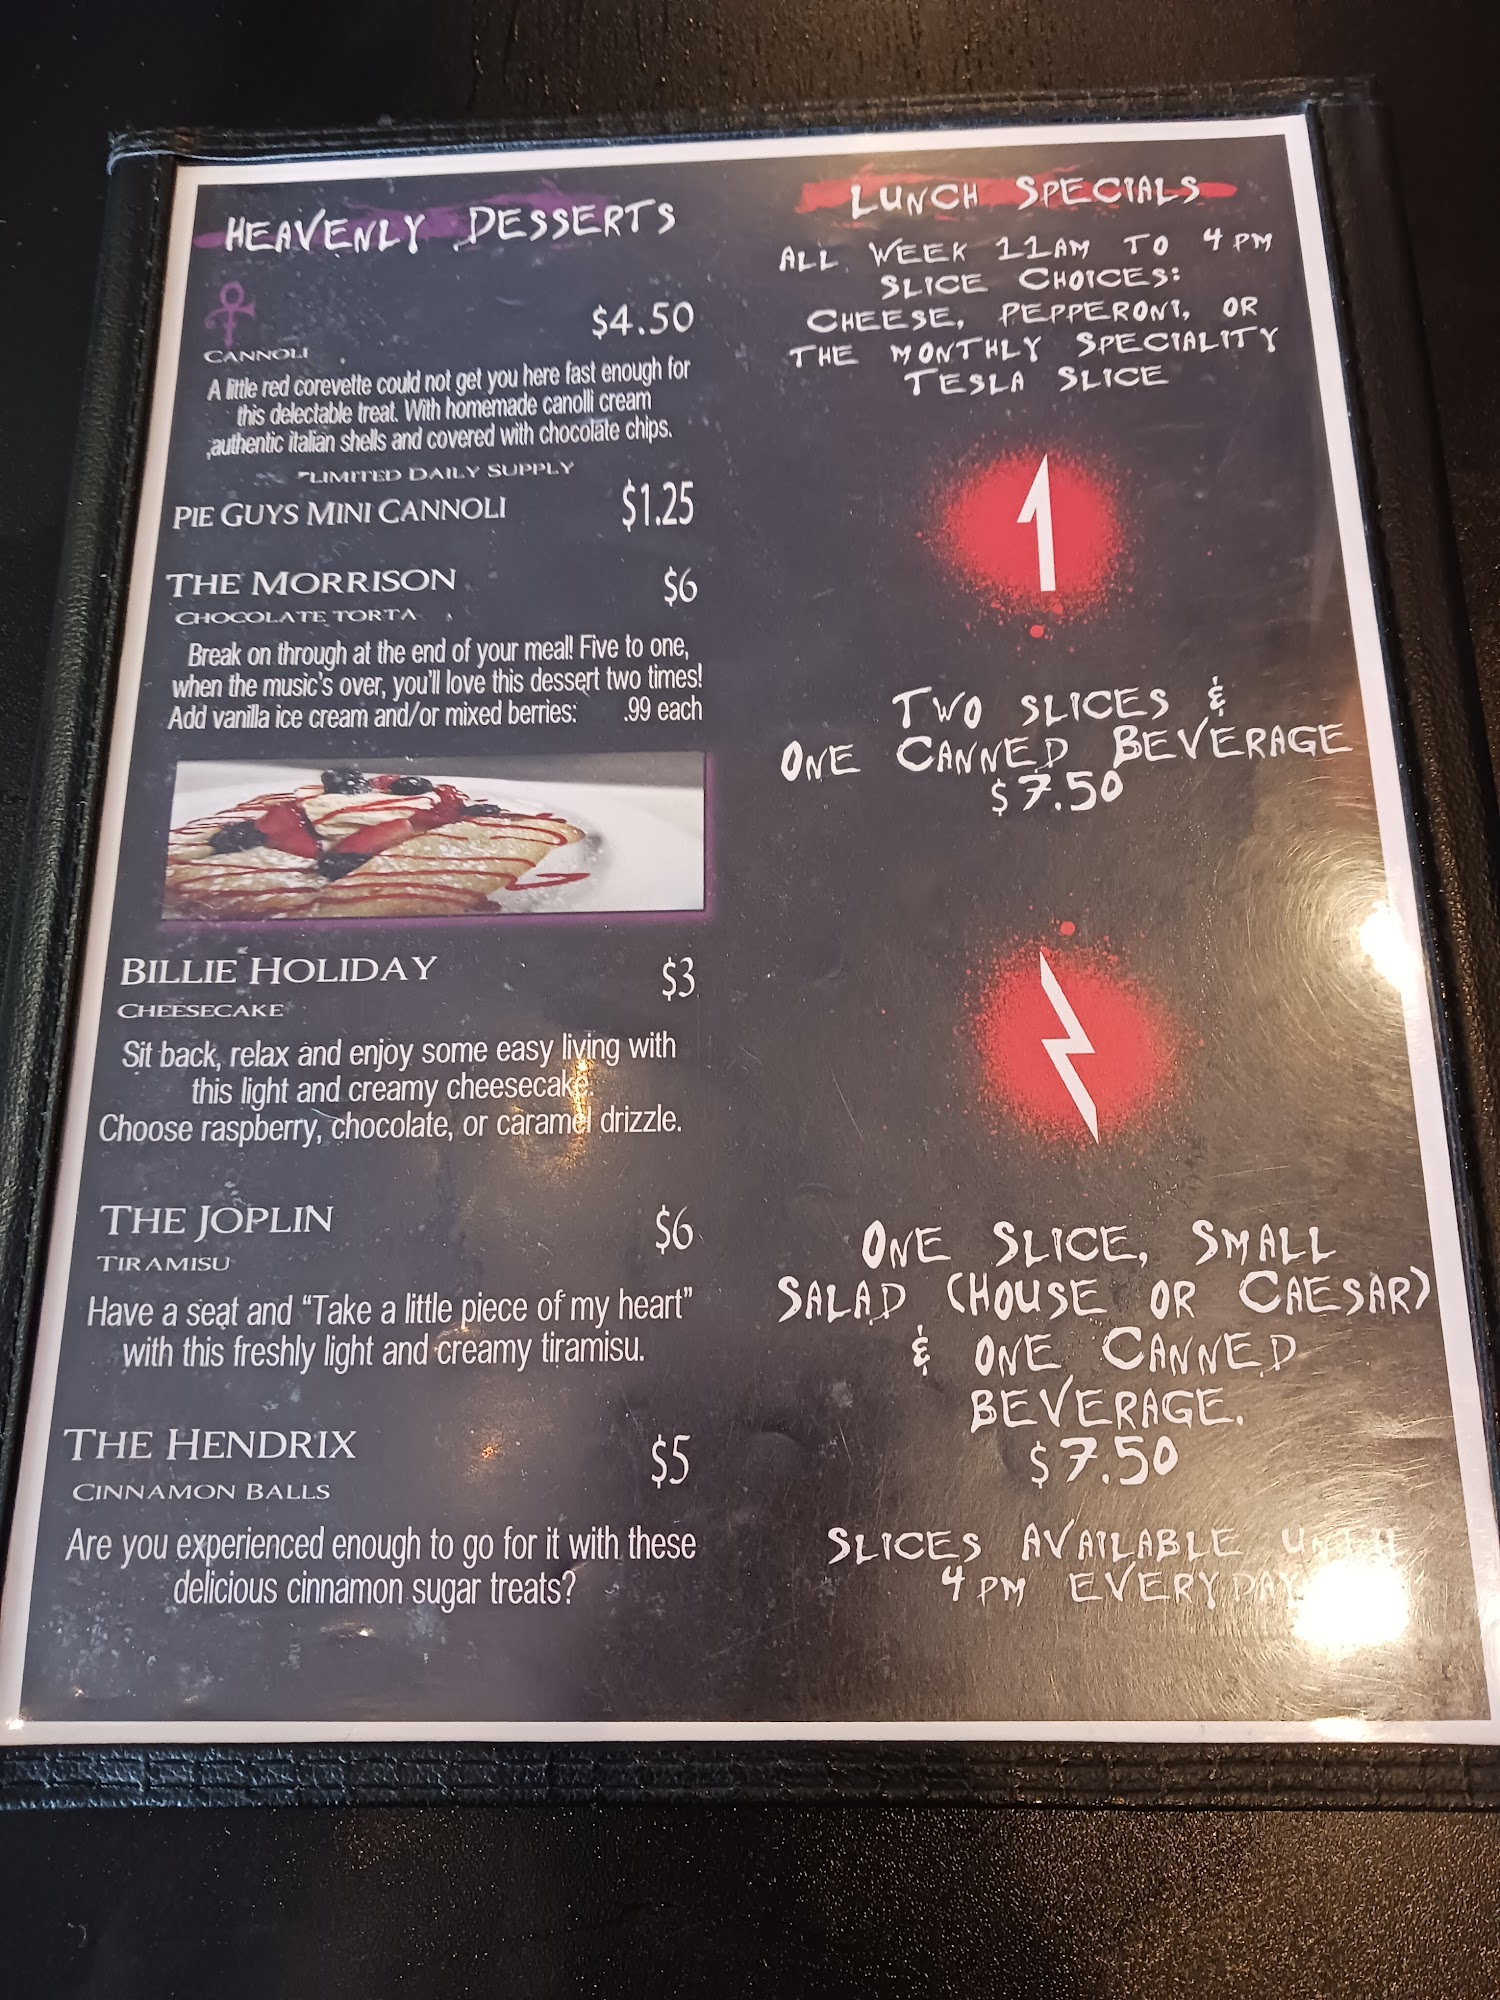 HEAVENLY DESSERTS
$4.50
CANNOLI
A little red corevette could not get you here fast enough for
this delectable treat. With homemade canolli cream
authentic italian shells and covered with chocolate chips.
*LIMITED DAILY SUPPLY
PIE GUYS MINI CANNOLI $1.25
THE MORRISON $6
CHOCOLATE TORTA
Break on through at the end of your meal! Five to one,
when the music's over, you'll love this dessert two times!
Add vanilla ice cream and/or mixed berries: .99 each
BILLIE HOLIDAY $3
CHEESECAKE
Sit back, relax and enjoy some easy living with
this light and creamy cheesecake.
Choose raspberry, chocolate, or caramel drizzle.
THE JOPLIN $6
TIRAMISU
Have a seat and “Take a little piece of my heart”
with this freshly light and creamy tiramisu.
THE HENDRIX $5
CINNAMON BALLS
Are you experienced enough to go for it with these
delicious cinnamon sugar treats?
LUNCH SPECIALS
ALL WEEK 11AM TO 4PM
SLICE CHOICES:
CHEESE, PEPPERONI, OR
THE MONTHLY SPECIALITY
TESLA SLICE
1
TWO SLICES &
ONE CANNED BEVERAGE
$7.50
2
ONE SLICE, SMALL
SALAD (HOUSE OR CAESAR)
& ONE CANNED
BEVERAGE.
$7.50
SLICES AVAILABLE UNTIL
4PM EVERYDAY